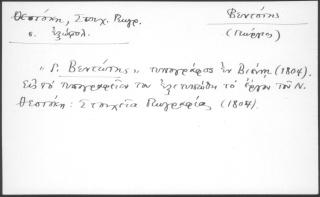 Θεοτόκη, Στοιχ. Γεωγρ.
Βεντότης
σ. ἐξώφυλ.
(Γεώργιος)
"Γ. Βεντώτης" τυπογράφος ἐν Βιέννῃ (1804).
Εἰς τό τυπογραφεῖον του ἐξετυπώθη τό ἔργον τοῦ Ν.
Θεοτόκη: Στοιχεῖα Γεωγραφίας (1804).